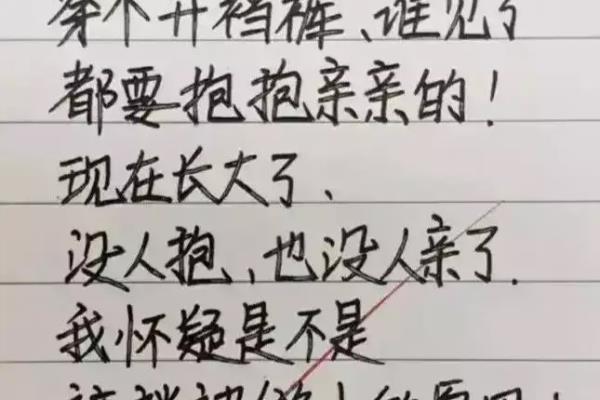 穿个开裆裤、谁见了
都要抱抱亲亲的!
现在长大了、
没人抱、也没人亲了.
我怀疑是不是